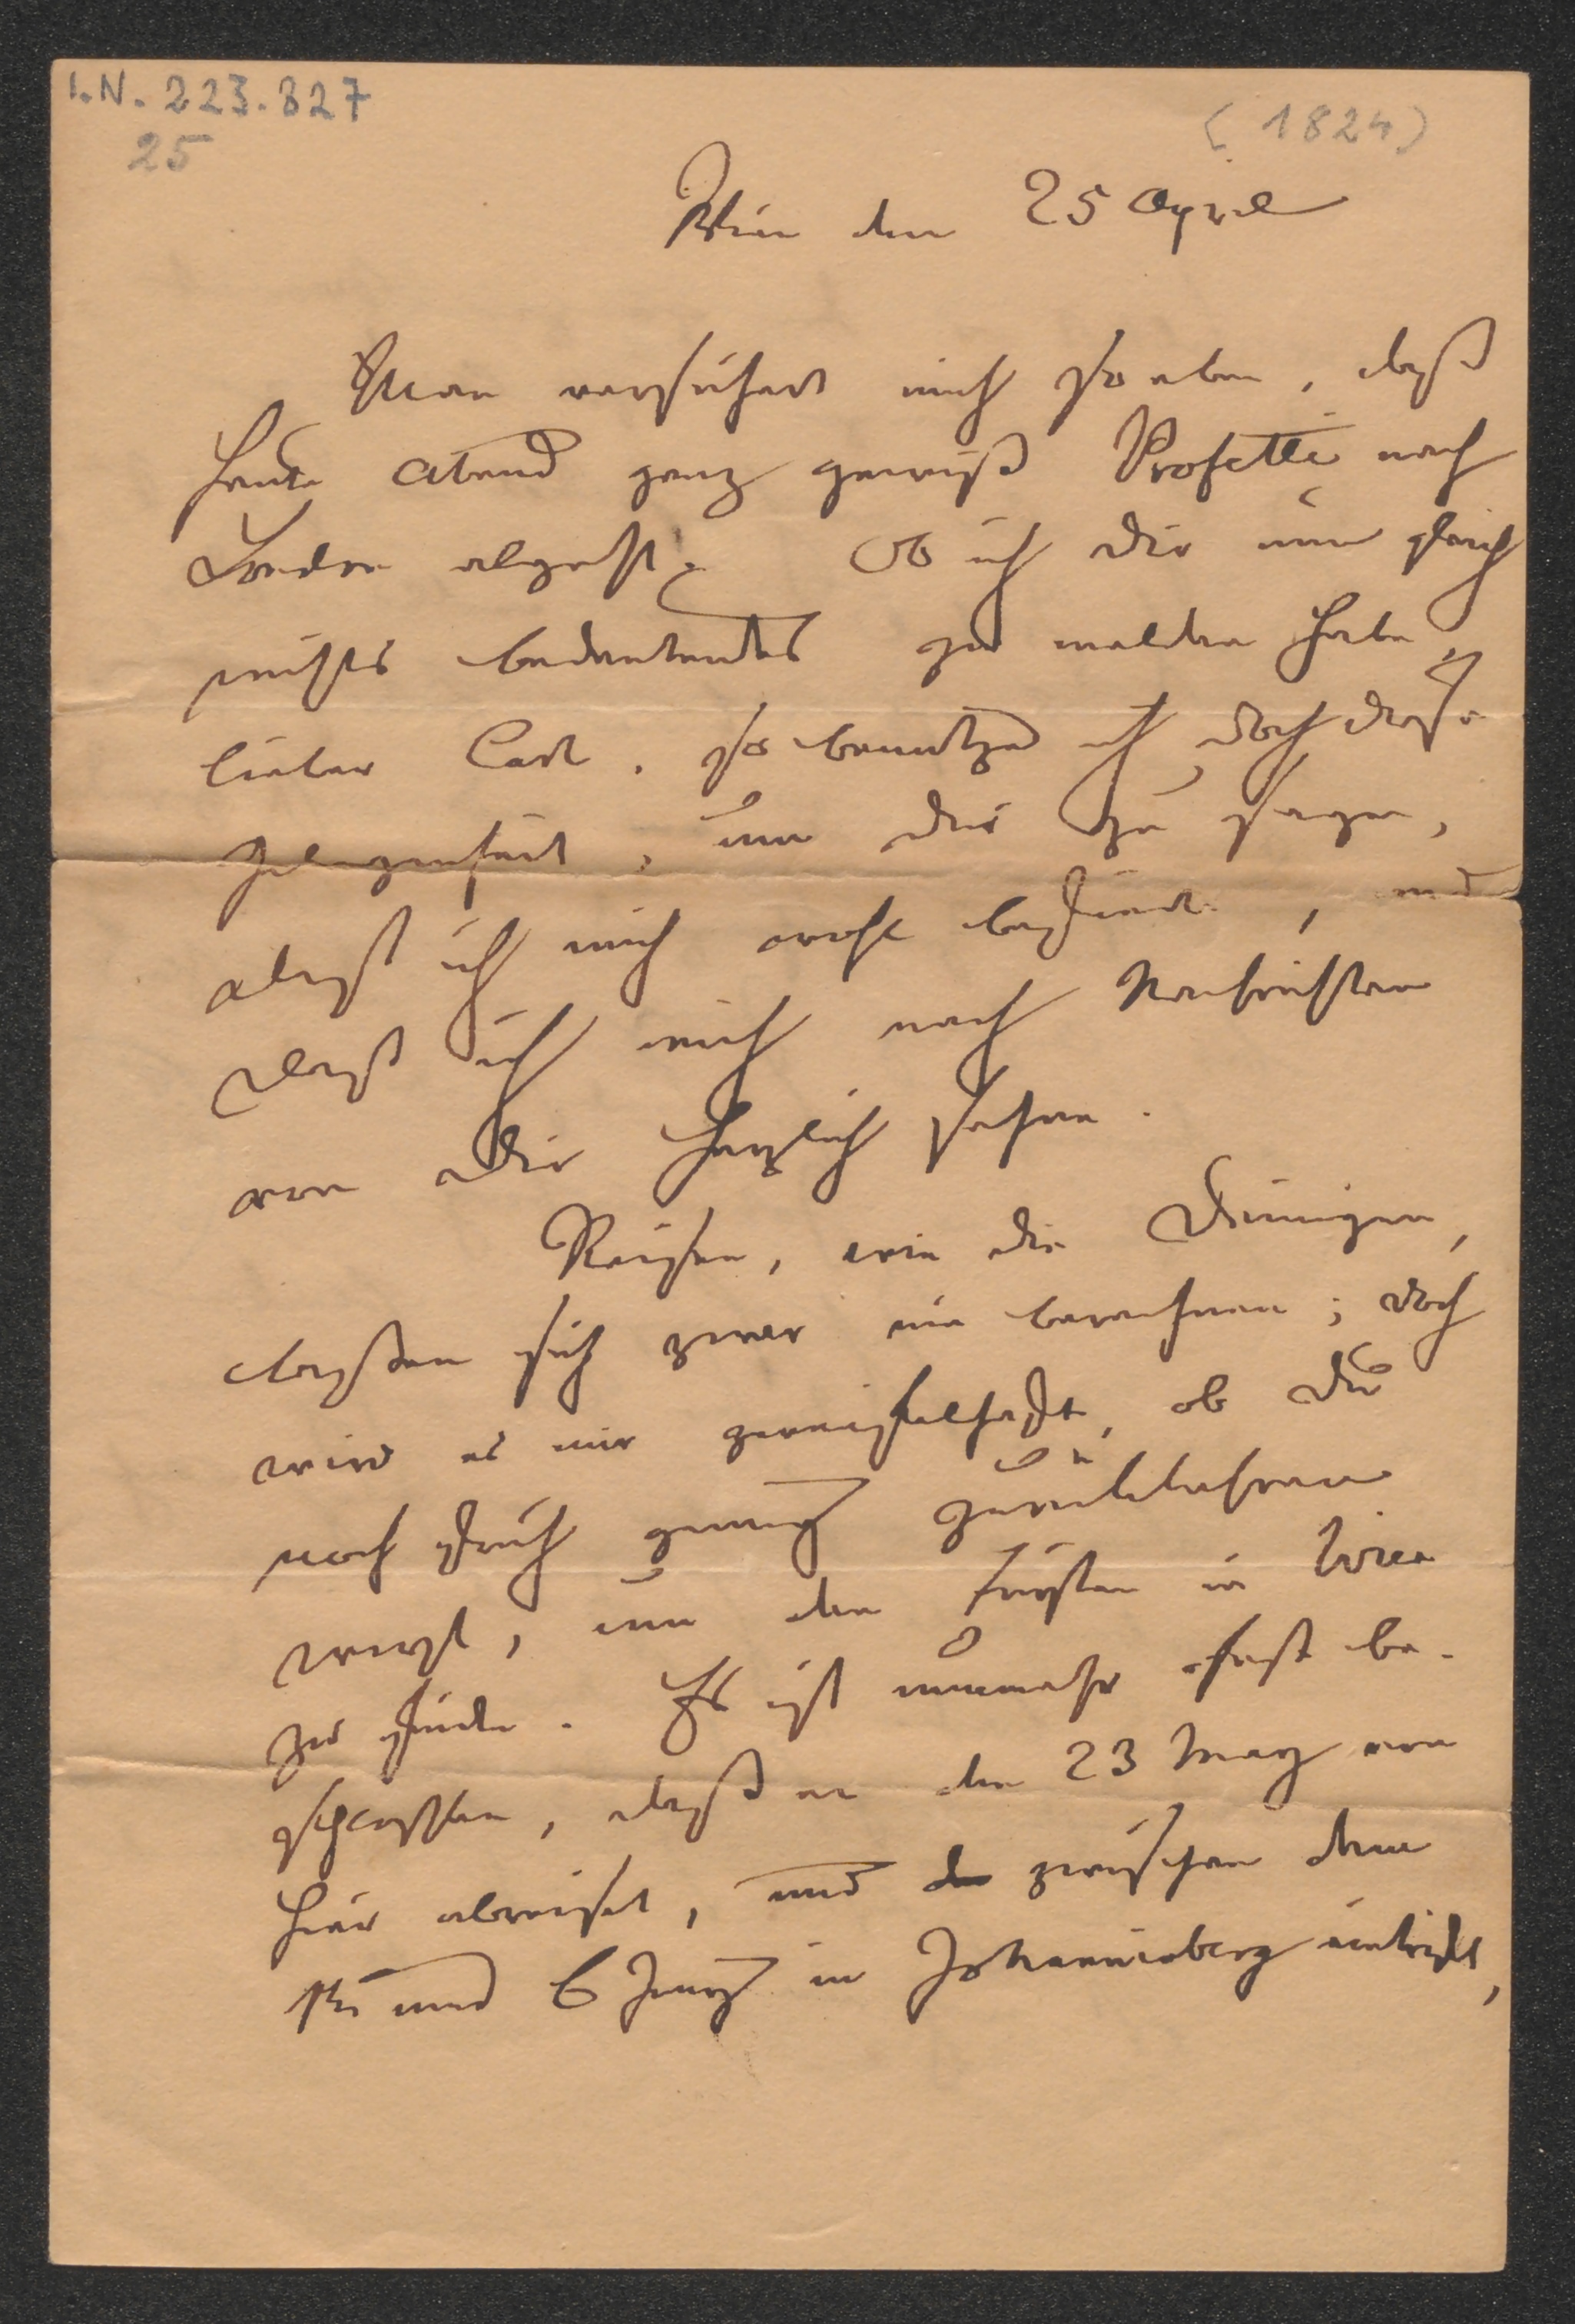 I.N. 223.827
25
(1824)
Wien den 25 April
Man versichert mich so eben, daß
heute Abend ganz gewiß Profetti nach
London abgeht. Ob ich dir nun gleich
nichts bedeutendes zu melden habe,
lieber Carl, so benutze ich doch diese
Gelegenheit, um dir zu sagen,
daß ich mich wohl befinde, und
daß ich mich nach Nachrichten
von dir herzlich sehne.
Reisen, wie die Deinigen,
lassen sich zwar nie berechnen; doch
wird es mir zweifelhaft, ob du
noch früh genug zurückkehren
wirst, um den Fürsten in Wien
zu finden. Es ist nunmehr fest be-
schlossen, daß er den 23 May von
hier abreiset, und zwischen dem
und 6 Juny in Johannisberg eintrifft,